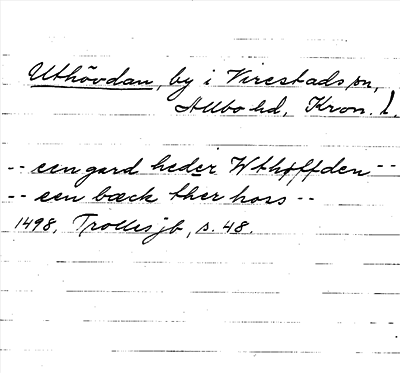 Uthövdan, by i Virestads sn,
Allbo hd, Kron. l.
-- een gard heder Wthøffden --
-- een bæck ther hoss --
1498. Trolles jb, s. 48.